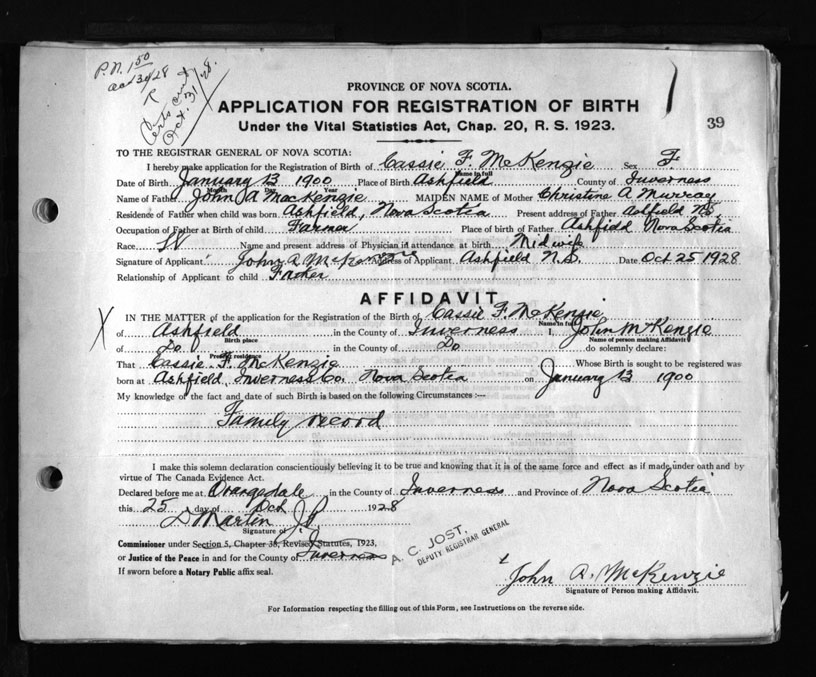 P.N. 1 50
Oct 30/28
R
Certs sent
Oct. 31/28.
PROVINCE OF NOVA SCOTIA.
APPLICATION FOR REGISTRATION OF BIRTH
39
Under the Vital Statistics Act, Chap. 20, R. S. 1923.
TO THE REGISTRAR GENERAL OF NOVA SCOTIA:
I hereby make application for the Registration of Birth of Cassie F. McKenzie Sex F
Name in full
Date of Birth January 13 1900 Place of Birth Ashfield County of Inverness
Month Day Year
Name of Father John A MacKenzie MAIDEN NAME of Mother Christine A. Murray
Residence of Father when child was born Ashfield, Nova Scotia Present address of Father Ashfield N.S.
Occupation of Father at Birth of child Farmer Place of birth of Father Ashfield Nova Scotia
Race Name and present address of Physician in attendance at birth Midwife
Signature of Applicant John A. McKenzie Address of Applicant Ashfield N.S. Date Oct 25 1928
Relationship of Applicant to child Father
AFFIDAVIT
IN THE MATTER of the application for the Registration of the Birth of Cassie F. McKenzie
Name in full
of Ashfield in the County of Inverness I, John McKenzie
Birth place Name of person making Affidavit
of Do in the County of Do do solemnly declare:
Present residence
That Cassie F. McKenzie Whose Birth is sought to be registered was
born at Ashfield Inverness Co. Nova Scotia on January 13 1900
My knowledge of the fact and date of such Birth is based on the following Circumstances :—
Family record
I make this solemn declaration conscientiously believing it to be true and knowing that it is of the same force and effect as if made under oath and by
virtue of The Canada Evidence Act.
Declared before me at Orangedale in the County of Inverness and Province of Nova Scotia
this 25 day of Oct 1928
D Martin J.P.
Signature of
Commissioner under Section 5, Chapter 38, Revised Statutes, 1923,
or Justice of the Peace in and for the County of Inverness
If sworn before a Notary Public affix seal.
A. C. JOST,
DEPUTY REGISTRAR GENERAL
John A. McKenzie
Signature of Person making Affidavit.
For Information respecting the filling out of this Form, see Instructions on the reverse side.